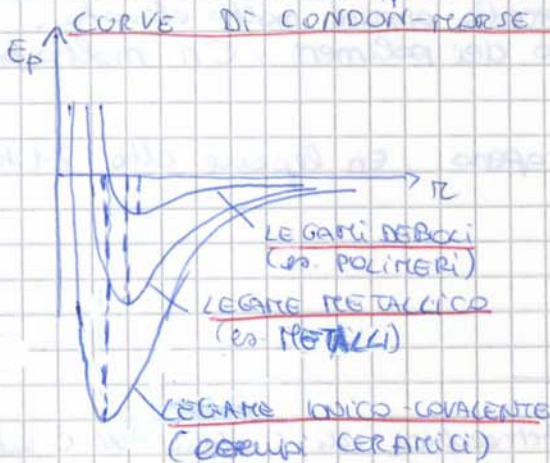 CURVE DI CONDON-MORSE
Ep
r
LEGAMI DEBOLI
(es. POLIMERI)
LEGAME METALLICO
(es METALLI)
LEGAME IONICO-COVALENTE
(esempi CERAMICI)